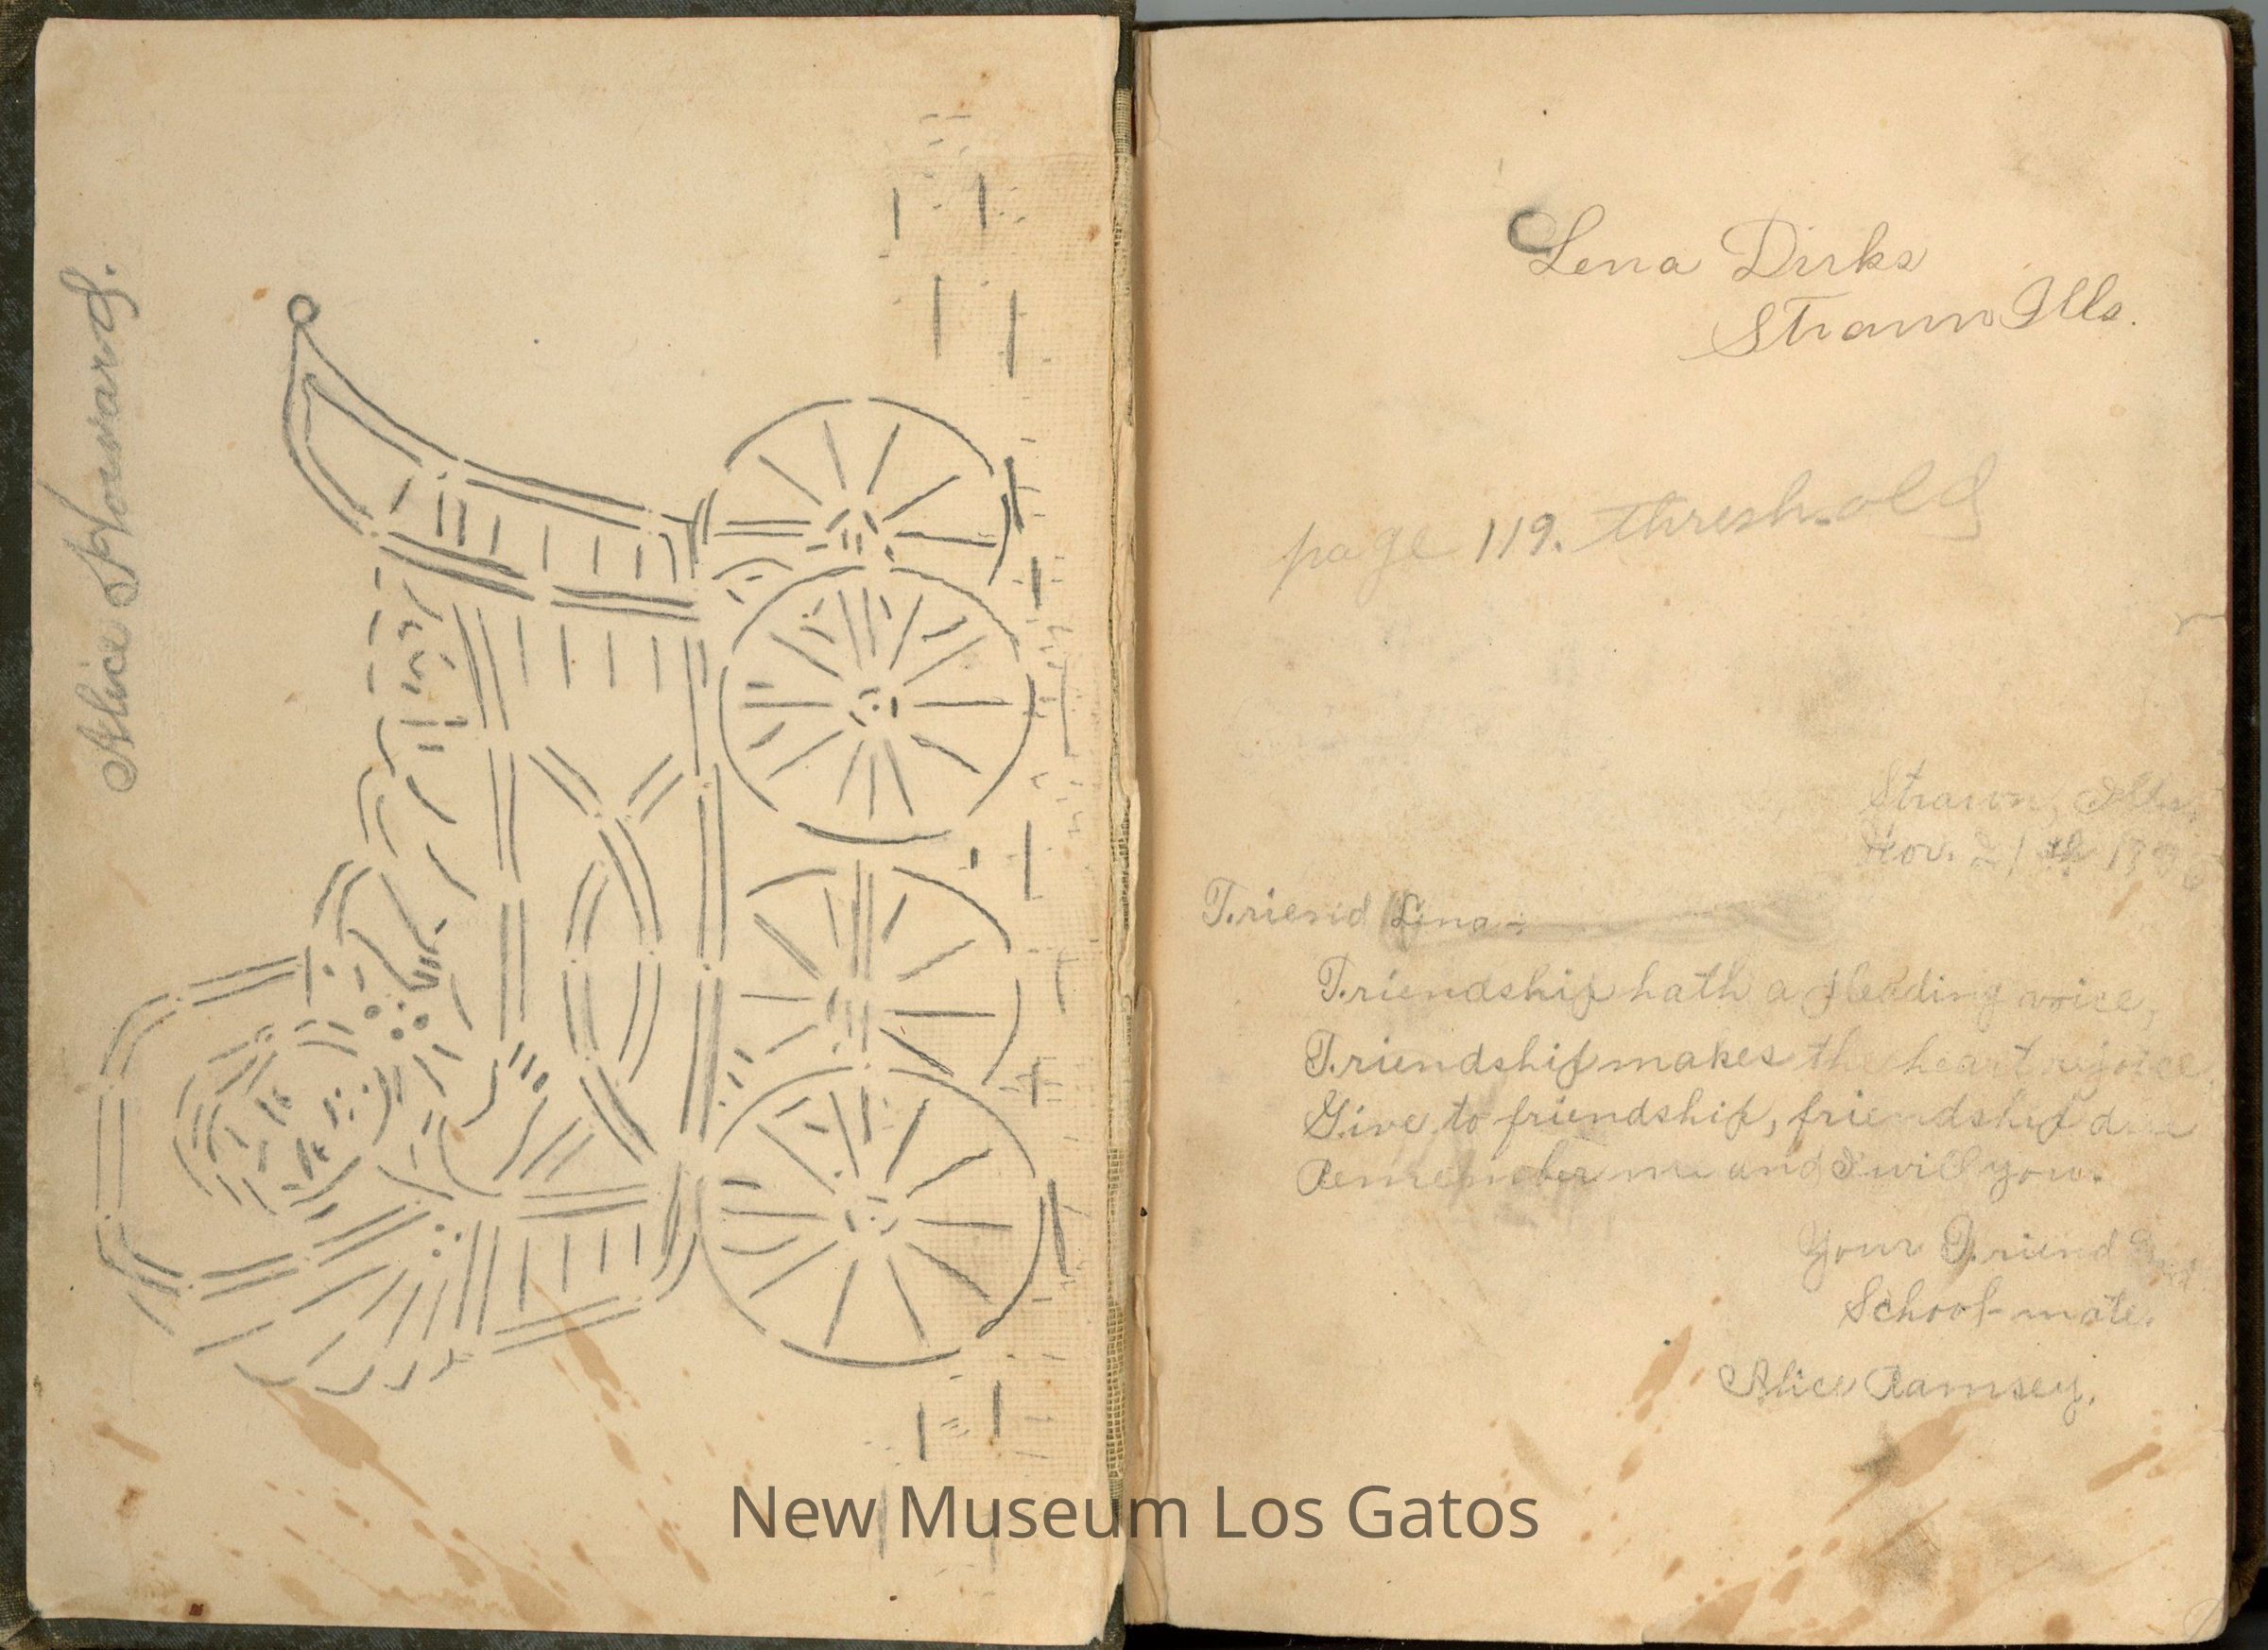 Alice Howard.
Lena Dirks
Strawn Ills.
page 119. threshold
Strawn, Ills.
Nov. 21th 189
Friend Lena-
Friendship hath a pleading voice,
Friendship makes the heart rejoice
Give to friendship, friendship due
Rememeber me and I will you.
Your Friend and
School-mate.
Alice Ramsey.
New Museum Los Gatos